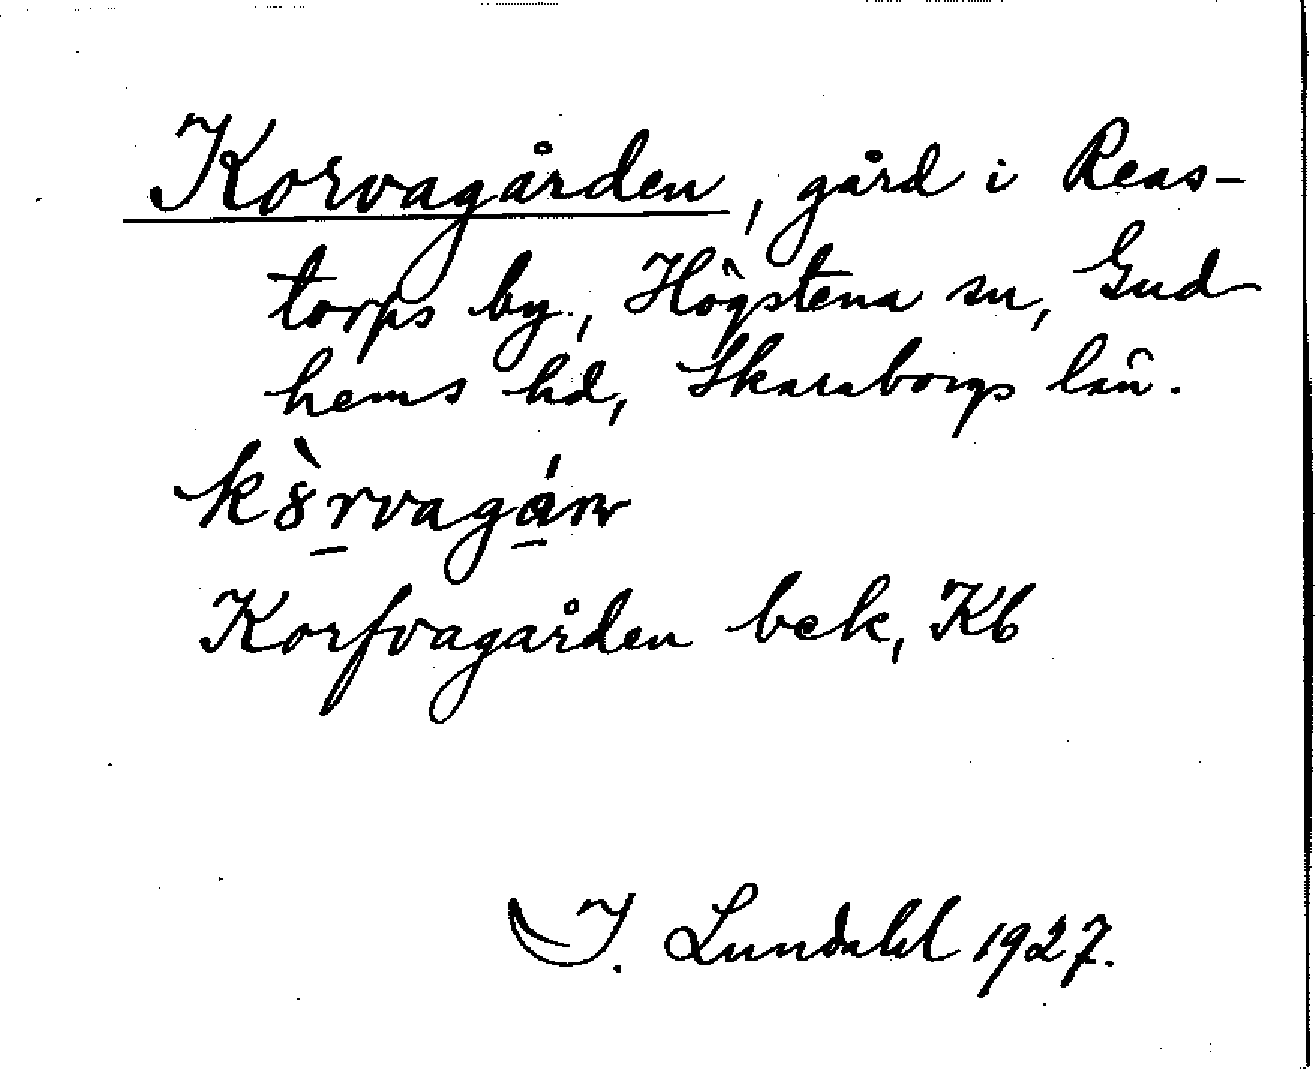 Korvagården, gård i Reas-
torps by, Högstena sn, Gud
hems hd, Skaraborgs län.
Korfvagården bek, Kb
I. Lundahl 1927.